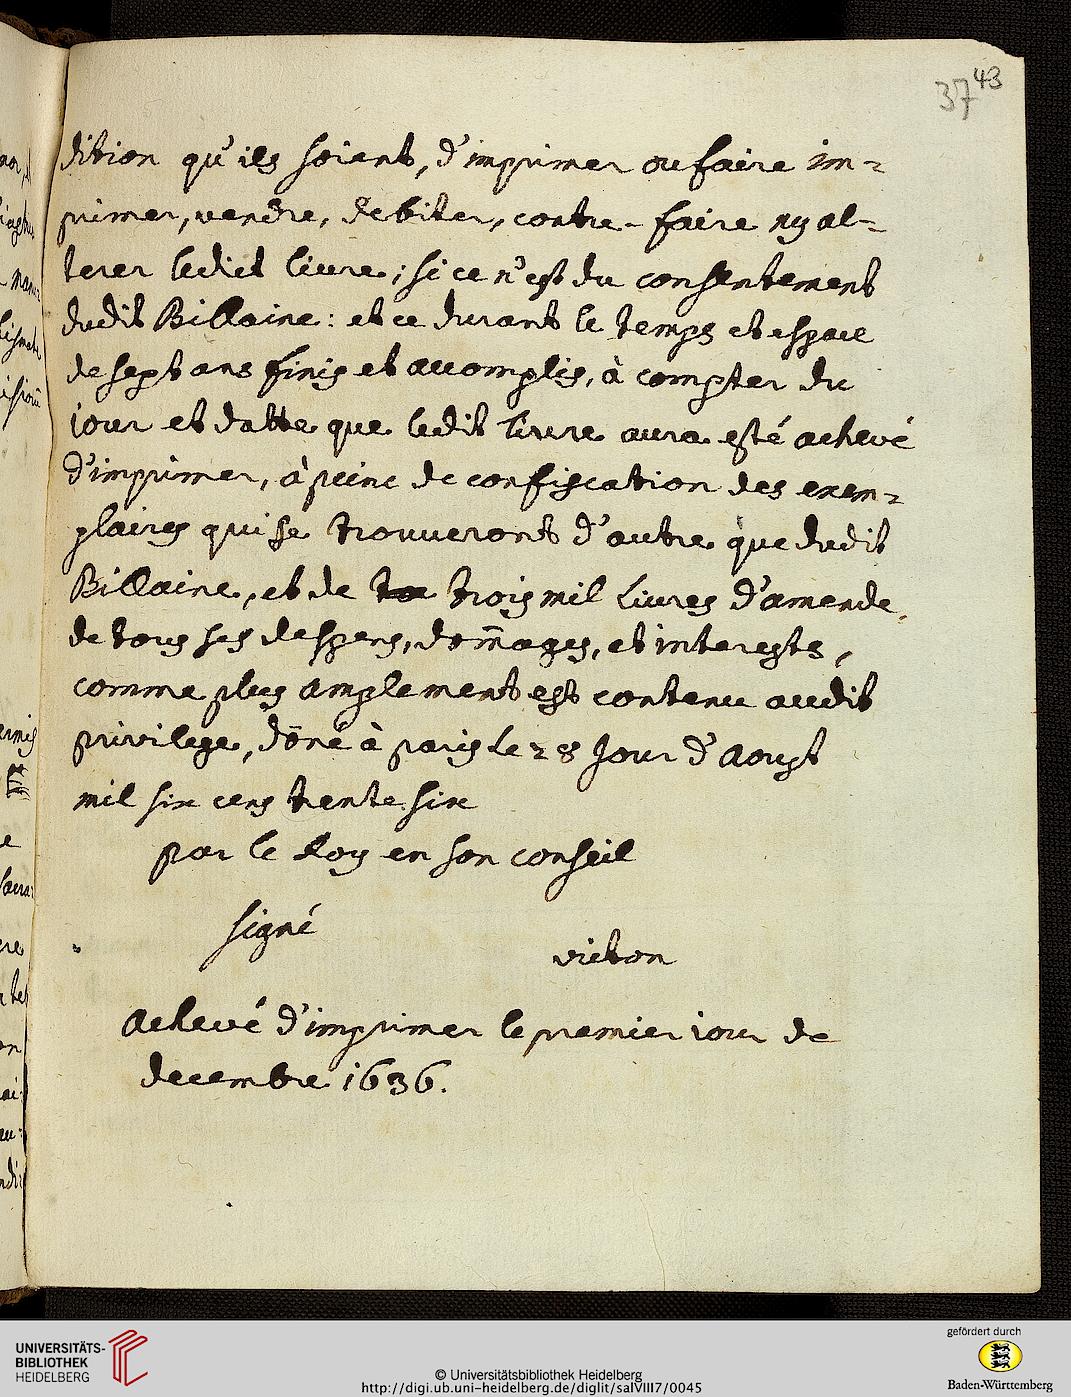 37 43
dition qu'ils soient, d'imprimer ou faire im-
primer, vendre, debiter, contre-faire ny al-
terer ledict livre; si ce n'est du consentement
dudit Billaine: et ce durant le temps et espace
de sept ans finis et accomplis, à compter du
iour et datte que ledit livre aura esté achevé
d'imprimer, à peine de confiscation des exem-
plaires qui se trouueront d'autre que dudit
Billaine, et de trois mil livres d'amende,
de tous ses despens, dom̃ages, et interests,
comme plus amplement est contenu audit
privilege, dõné à paris le 28 Jour d'Aoust
mil six cens trente six
par le Roy en son conseil
signé
victon
achevé d'imprimer le premier iour de
decembre 1636.
UNIVERSITÄTS-
BIBLIOTHEK
HEIDELBERG
© Universitätsbibliothek Heidelberg
http://digi.ub.uni-heidelberg.de/diglit/salVIII7/0045
gefördert durch
Baden-Württemberg